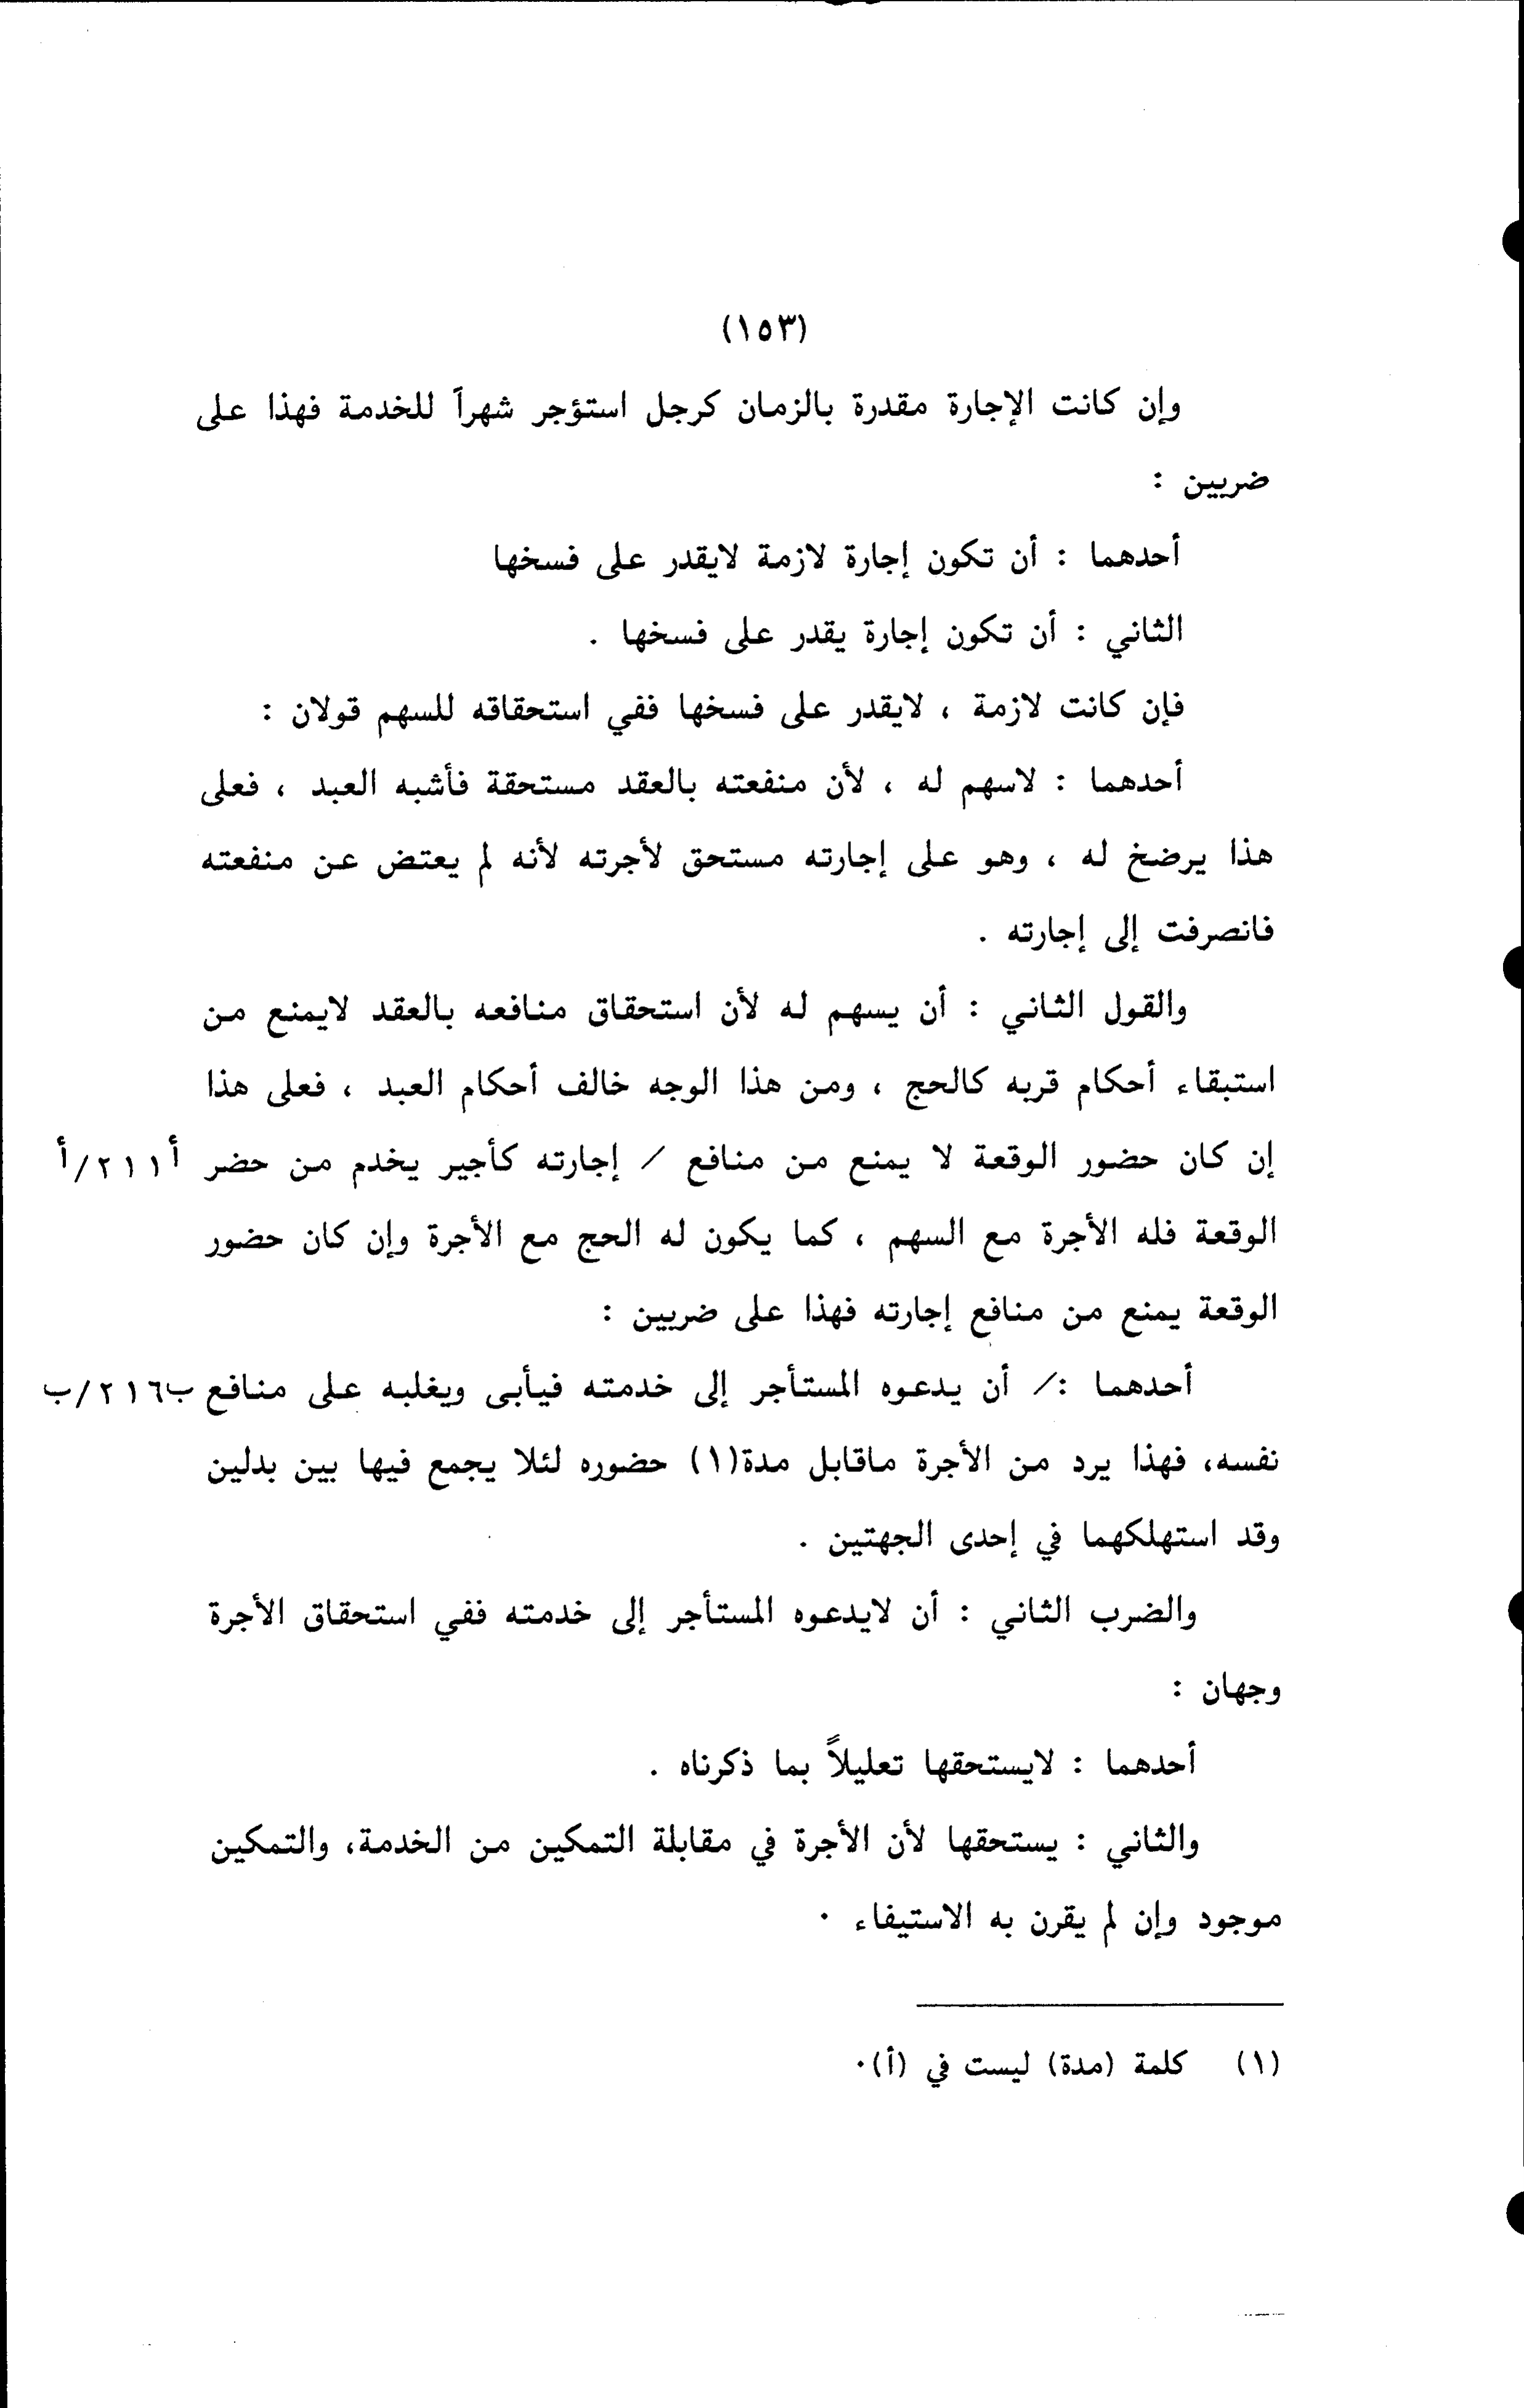 (١٥٣)
وإن كانت الإجارة مقدرة بالزمان كرجل استؤجر شهراً للخدمة فهذا على
ضربين :
أحدهما : أن تكون إجارة لازمة لايقدر على فسخها
الثاني : أن تكون إجارة يقدر على فسخها .
فإن كانت لازمة ، لايقدر على فسخها ففي استحقاقه للسهم قولان :
أحدهما : لاسهم له ، لأن منفعته بالعقد مستحقة فأشبه العبد ، فعلى
هذا يرضخ له ، وهو على إجارته مستحق لأجرته لأنه لم يعتض عن منفعته
فانصرفت إلى إجارته .
والقول الثاني : أن يسهم له لأن استحقاق منافعه بالعقد لايمنع من
استبقاء أحكام قربه كالحج ، ومن هذا الوجه خالف أحكام العبد ، فعلى هذا
إن كان حضور الوقعة لا يمنع من منافع / إجارته كأجير يخدم من حضر أ٢١١/أ
الوقعة فله الأجرة مع السهم ، كما يكون له الحج مع الأجرة وإن كان حضور
الوقعة يمنع من منافع إجارته فهذا على ضربين :
أحدهما :/ أن يدعوه المستأجر إلى خدمته فيأبى ويغلبه على منافع ب٢١٦/ب
نفسه، فهذا يرد من الأجرة ماقابل مدة(١) حضوره لئلا يجمع فيها بين بدلين
وقد استهلكهما في إحدى الجهتين .
والضرب الثاني : أن لايدعوه المستأجر إلى خدمته ففي استحقاق الأجرة
وجهان :
أحدهما : لايستحقها تعليلاً بما ذكرناه .
والثاني : يستحقها لأن الأجرة في مقابلة التمكين من الخدمة، والتمكين
موجود وإن لم يقرن به الاستيفاء ٠
(١) كلمة (مدة) ليست في (أ)٠